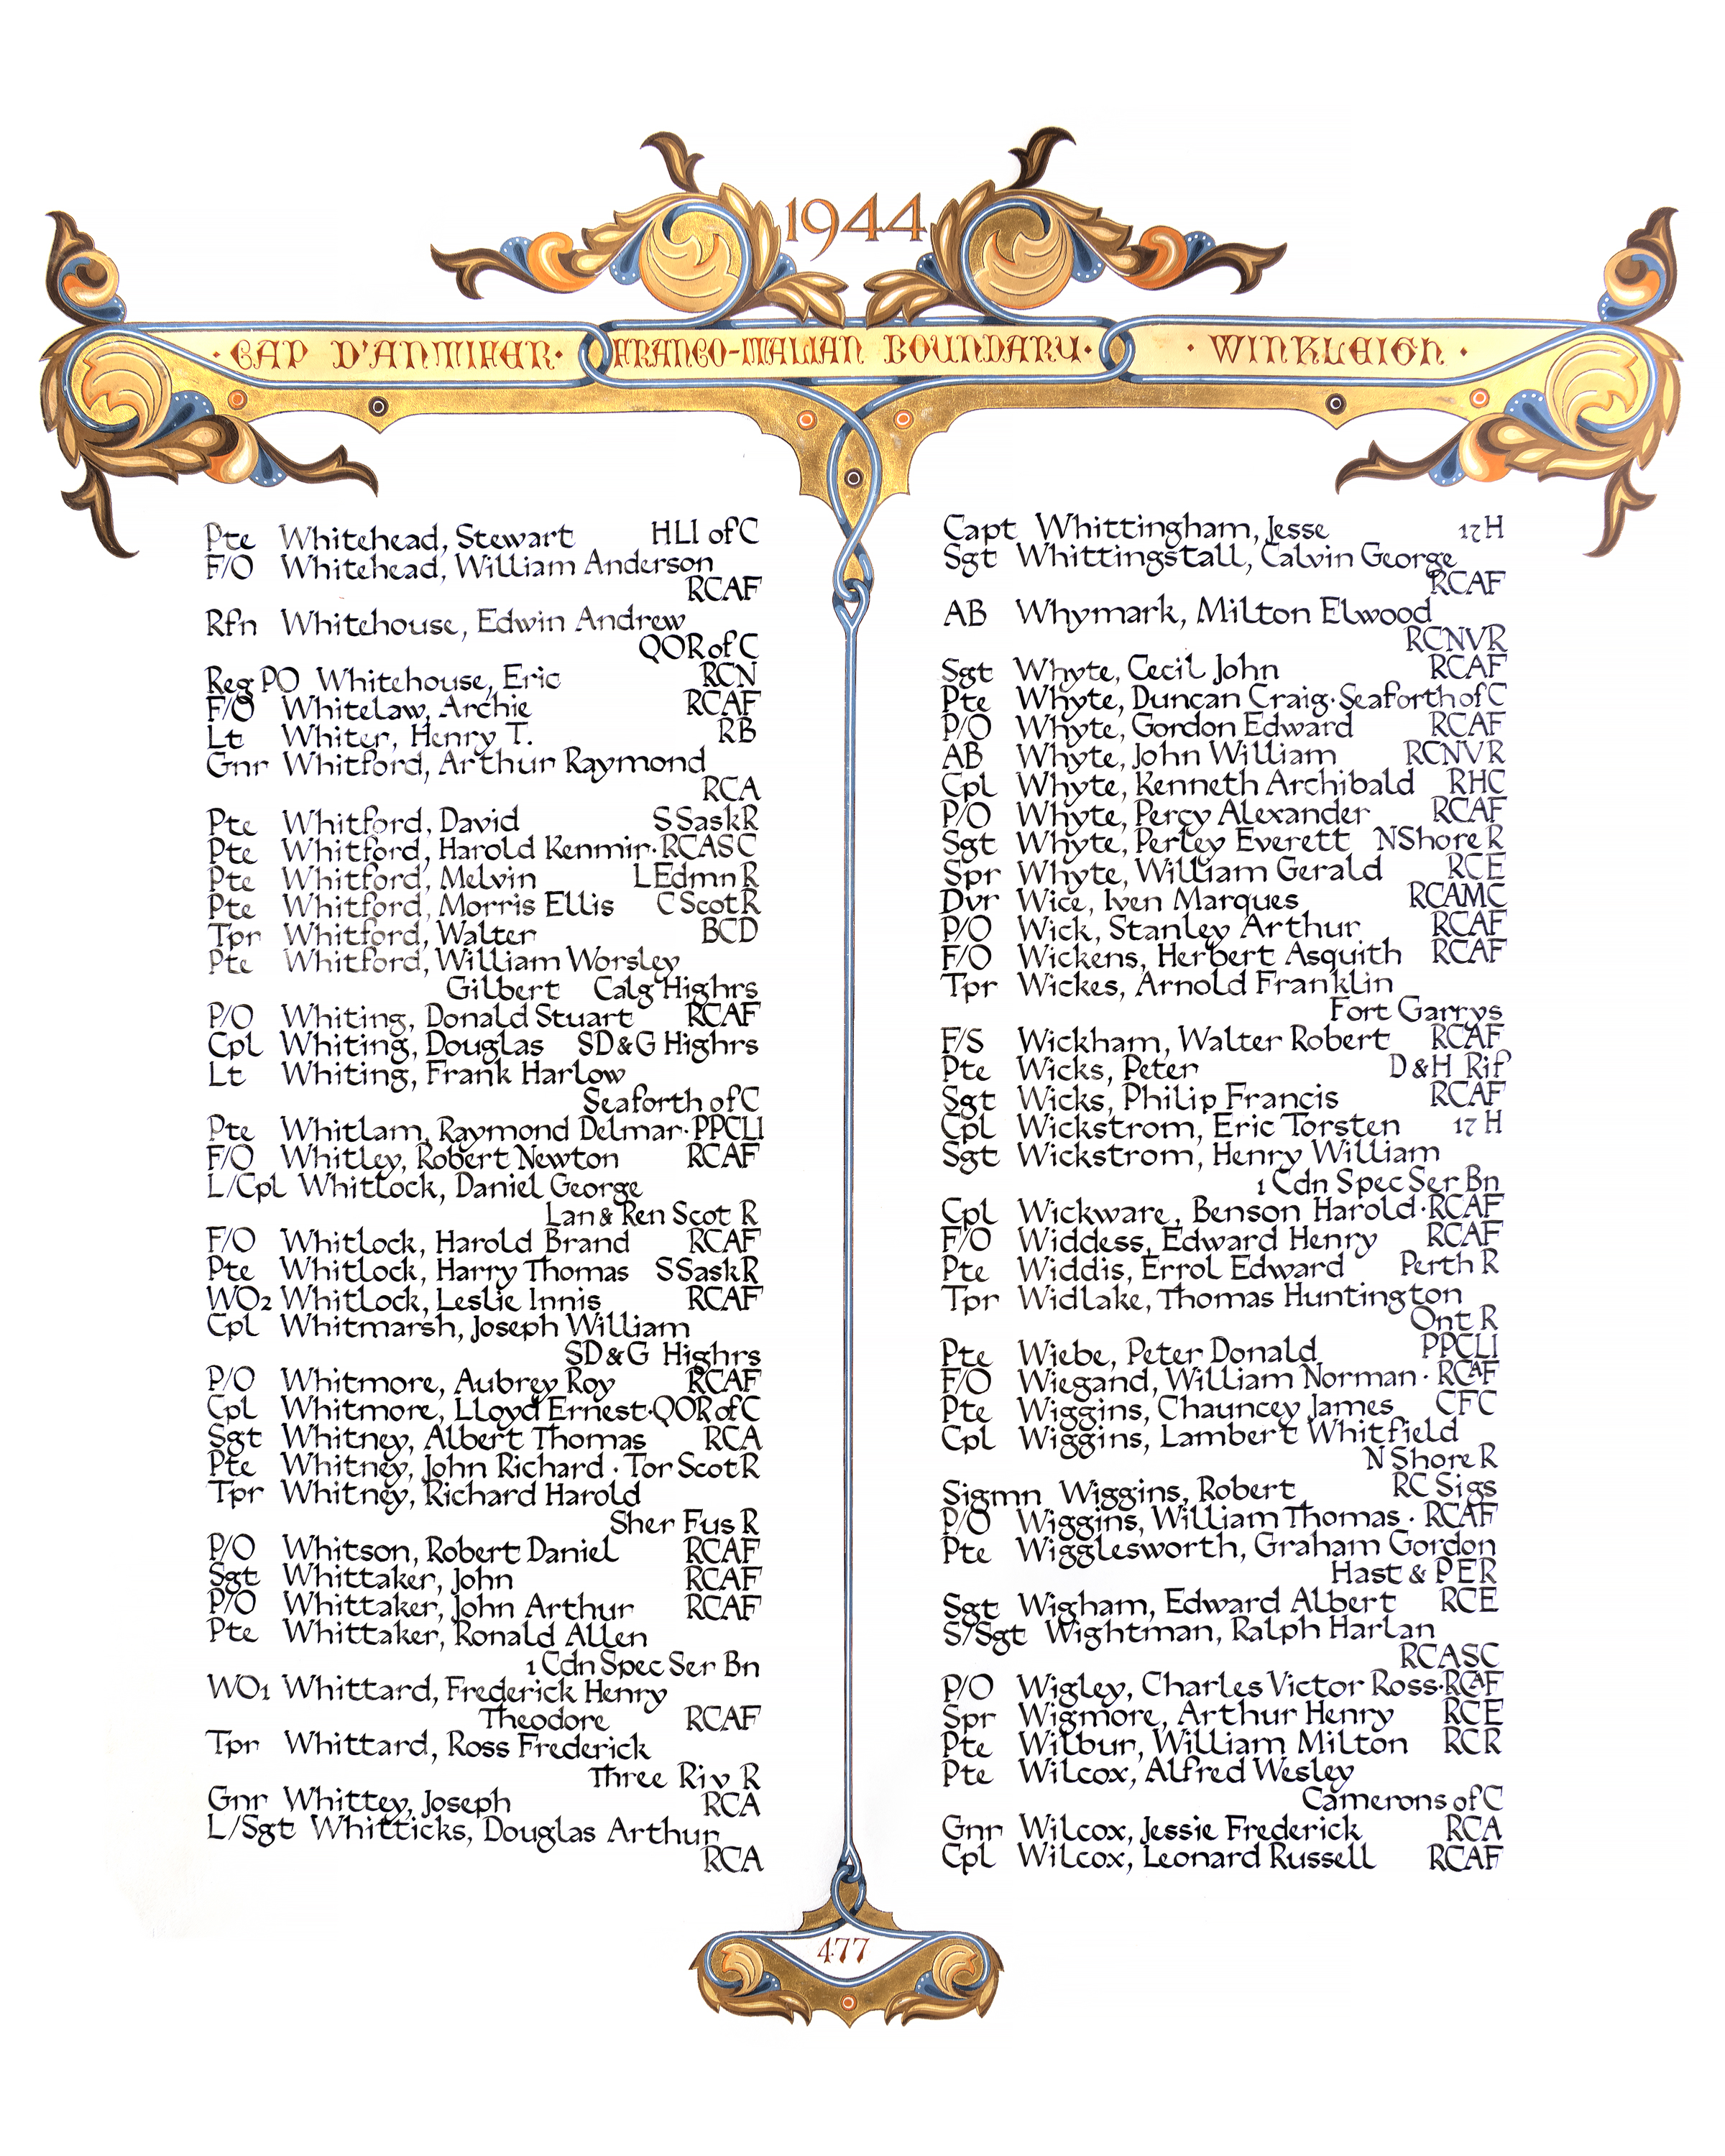 1944
· CAP D'ANTIFER · FRANCO-ITALIAN BOUNDARY · · WINKLEIGH ·
Pte Whitehead, Stewart HLI of C
F/O Whitehead, William Anderson
RCAF
Rfn Whitehouse, Edwin Andrew
QOR of C
Reg PO Whitehouse, Eric RCN
F/O Whitelaw, Archie RCAF
Lt Whiter, Henry T. RB
Gnr Whitford, Arthur Raymond
RCA
Pte Whitford, David S Sask R
Pte Whitford, Harold Kenmir · RCASC
Pte Whitford, Melvin L Edmn R
Pte Whitford, Morris Ellis C Scot R
Tpr Whitford, Walter BCD
Pte Whitford, William Worsley
Gilbert Calg Highrs
P/O Whiting, Donald Stuart RCAF
Cpl Whiting, Douglas SD & G Highrs
Lt Whiting, Frank Harlow
Seaforth of C
Pte Whitlam, Raymond Delmar · PPCLI
F/O Whitley, Robert Newton RCAF
L/Cpl Whitlock, Daniel George
Lan & Ren Scot R
F/O Whitlock, Harold Brand RCAF
Pte Whitlock, Harry Thomas S Sask R
WO2 Whitlock, Leslie Innis RCAF
Cpl Whitmarsh, Joseph William
SD & G Highrs
P/O Whitmore, Aubrey Roy RCAF
Cpl Whitmore, Lloyd Ernest · QOR of C
Sgt Whitney, Albert Thomas RCA
Pte Whitney, John Richard · Tor Scot R
Tpr Whitney, Richard Harold
Sher Fus R
P/O Whitson, Robert Daniel RCAF
Sgt Whittaker, John RCAF
P/O Whittaker, John Arthur RCAF
Pte Whittaker, Ronald Allen
1 Cdn Spec Ser Bn
WO1 Whittard, Frederick Henry
Theodore RCAF
Tpr Whittard, Ross Frederick
Three Riv R
Gnr Whittey, Joseph RCA
L/Sgt Whitticks, Douglas Arthur
RCA
Capt Whittingham, Jesse 17 H
Sgt Whittingstall, Calvin George
RCAF
AB Whymark, Milton Elwood
RCNVR
Sgt Whyte, Cecil John RCAF
Pte Whyte, Duncan Craig · Seaforth of C
P/O Whyte, Gordon Edward RCAF
AB Whyte, John William RCNVR
Cpl Whyte, Kenneth Archibald RHC
P/O Whyte, Percy Alexander RCAF
Sgt Whyte, Perley Everett N Shore R
Spr Whyte, William Gerald RCE
Dvr Wice, Iven Marques RCAMC
P/O Wick, Stanley Arthur RCAF
F/O Wickens, Herbert Asquith RCAF
Tpr Wickes, Arnold Franklin
Fort Garrys
F/S Wickham, Walter Robert RCAF
Pte Wicks, Peter D & H Rif
Sgt Wicks, Philip Francis RCAF
Cpl Wickstrom, Eric Torsten 17 H
Sgt Wickstrom, Henry William
1 Cdn Spec Ser Bn
Cpl Wickware, Benson Harold · RCAF
F/O Widdess, Edward Henry RCAF
Pte Widdis, Errol Edward Perth R
Tpr Widlake, Thomas Huntington
Ont R
Pte Wiebe, Peter Donald PPCLI
F/O Wiegand, William Norman · RCAF
Pte Wiggins, Chauncey James CFC
Cpl Wiggins, Lambert Whitfield
N Shore R
Sigmn Wiggins, Robert RC Sigs
P/O Wiggins, William Thomas · RCAF
Pte Wigglesworth, Graham Gordon
Hast & PER
Sgt Wigham, Edward Albert RCE
S/Sgt Wightman, Ralph Harlan
RCASC
P/O Wigley, Charles Victor Ross · RCAF
Spr Wigmore, Arthur Henry RCE
Pte Wilbur, William Milton RCR
Pte Wilcox, Alfred Wesley
Camerons of C
Gnr Wilcox, Jessie Frederick RCA
Cpl Wilcox, Leonard Russell RCAF
477